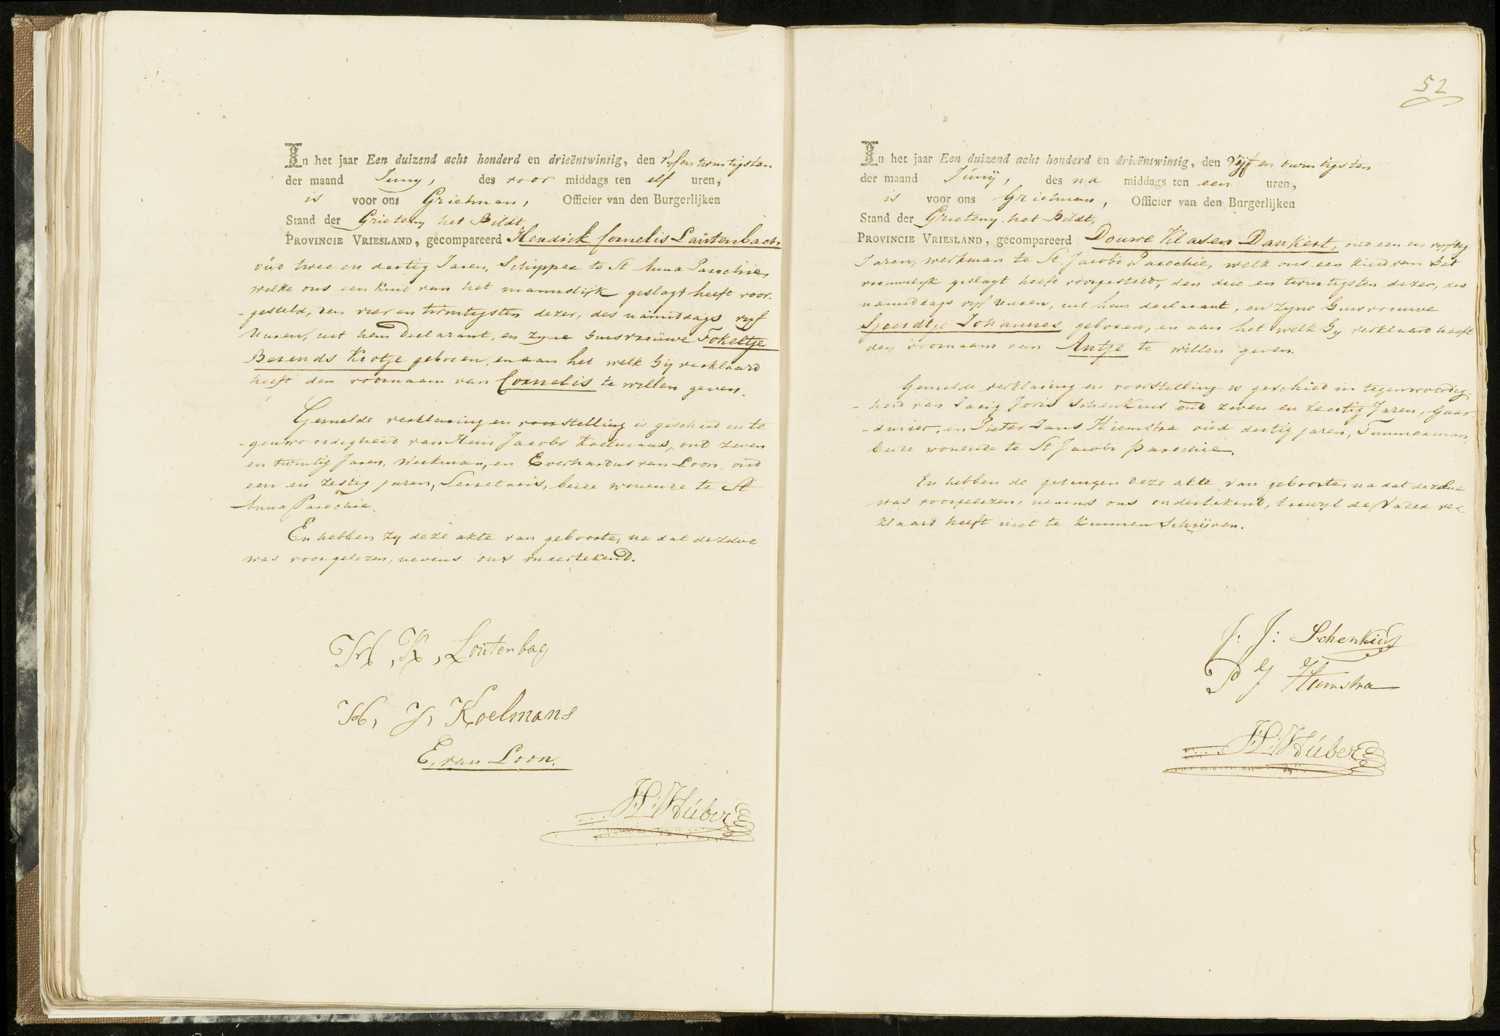 In het jaar Een duizend acht honderd en drieëntwintig, den vyfentwintigsten
der maand Juny, des voor middags ten elf uren,
is voor ons Grietman, Officier van den Burgerlijken
Stand der Grieteny het Bildt,
PROVINCIE VRIESLAND, gecompareerd Hendrick Cornelis Lautenbach,
oud twee en dertig Jaren, Schipper te St Anna Parochie,
welke ons een kind van het mannelijk geslagt heeft voor-
-gesteld, den vier en twintigsten dezer, des namiddags vyf
Uuren, uit hem Declarant, en zyne huisvrouwe Fokeltje
Berends Krotje geboren, en aan het welk hij verklaard
heeft den voornaam van Cornelis te willen geven.
Gemelde verklaring en voorstelling is geschied in te-
-genwoordigheid van Hein Jacobs Koelmans, out zeven
en twintig Jaren, Werkman, en Everhardus van Loon, oud
een en zestig jaren, Secretaris, beide wonende te St
Anna Parochie.
En hebben zy deze akte van geboorte, na dat dezelve
was voorgelezen, nevens ons onderteekend.
H, K, Loutenbag
H, J, Koelmans
E. van Loon.
H. Húber
52
In het jaar Een duizend acht honderd en drieëntwintig, den Vijf en twintigsten
der maand Junij, des na middags ten een uren,
is voor ons Grietman, Officier van den Burgerlijken
Stand der Grieteny het Bildt,
PROVINCIE VRIESLAND, gecompareerd Douwe Klasen Dankert, oud een en vyftig
Jaren, werkman te St Jacobi Parochie, welk ons een kind van het
vrouwelijk geslagt heeft voorgesteld, den drie en twintigsten dezer, des
namiddags vyf Uuren, uit hem declarant, en zyne huisvrouwe
Sjoerdtje Johannes geboren, en aan het welk hy verklaard heeft
den voornaam van Antje te willen geven.
Gemelde verklaring en voorstelling is geschied in tegenwoordig-
-heid van Joris Schenkius oud zeven en zestig Jaren,
en Pieter Jans Hiemstra oud dertig jaren, Timmerman,
beide wonende te St Jacobi parochie.
En hebben de getuigen deze akte van geboorte, na dat dezelve
was voorgelezen, nevens ons onderteekend, terwyl de Vader ver-
klaard heeft niet te kunnen Schrijven.
J: J: Schenkius
P J Hiemstra
H. Húber